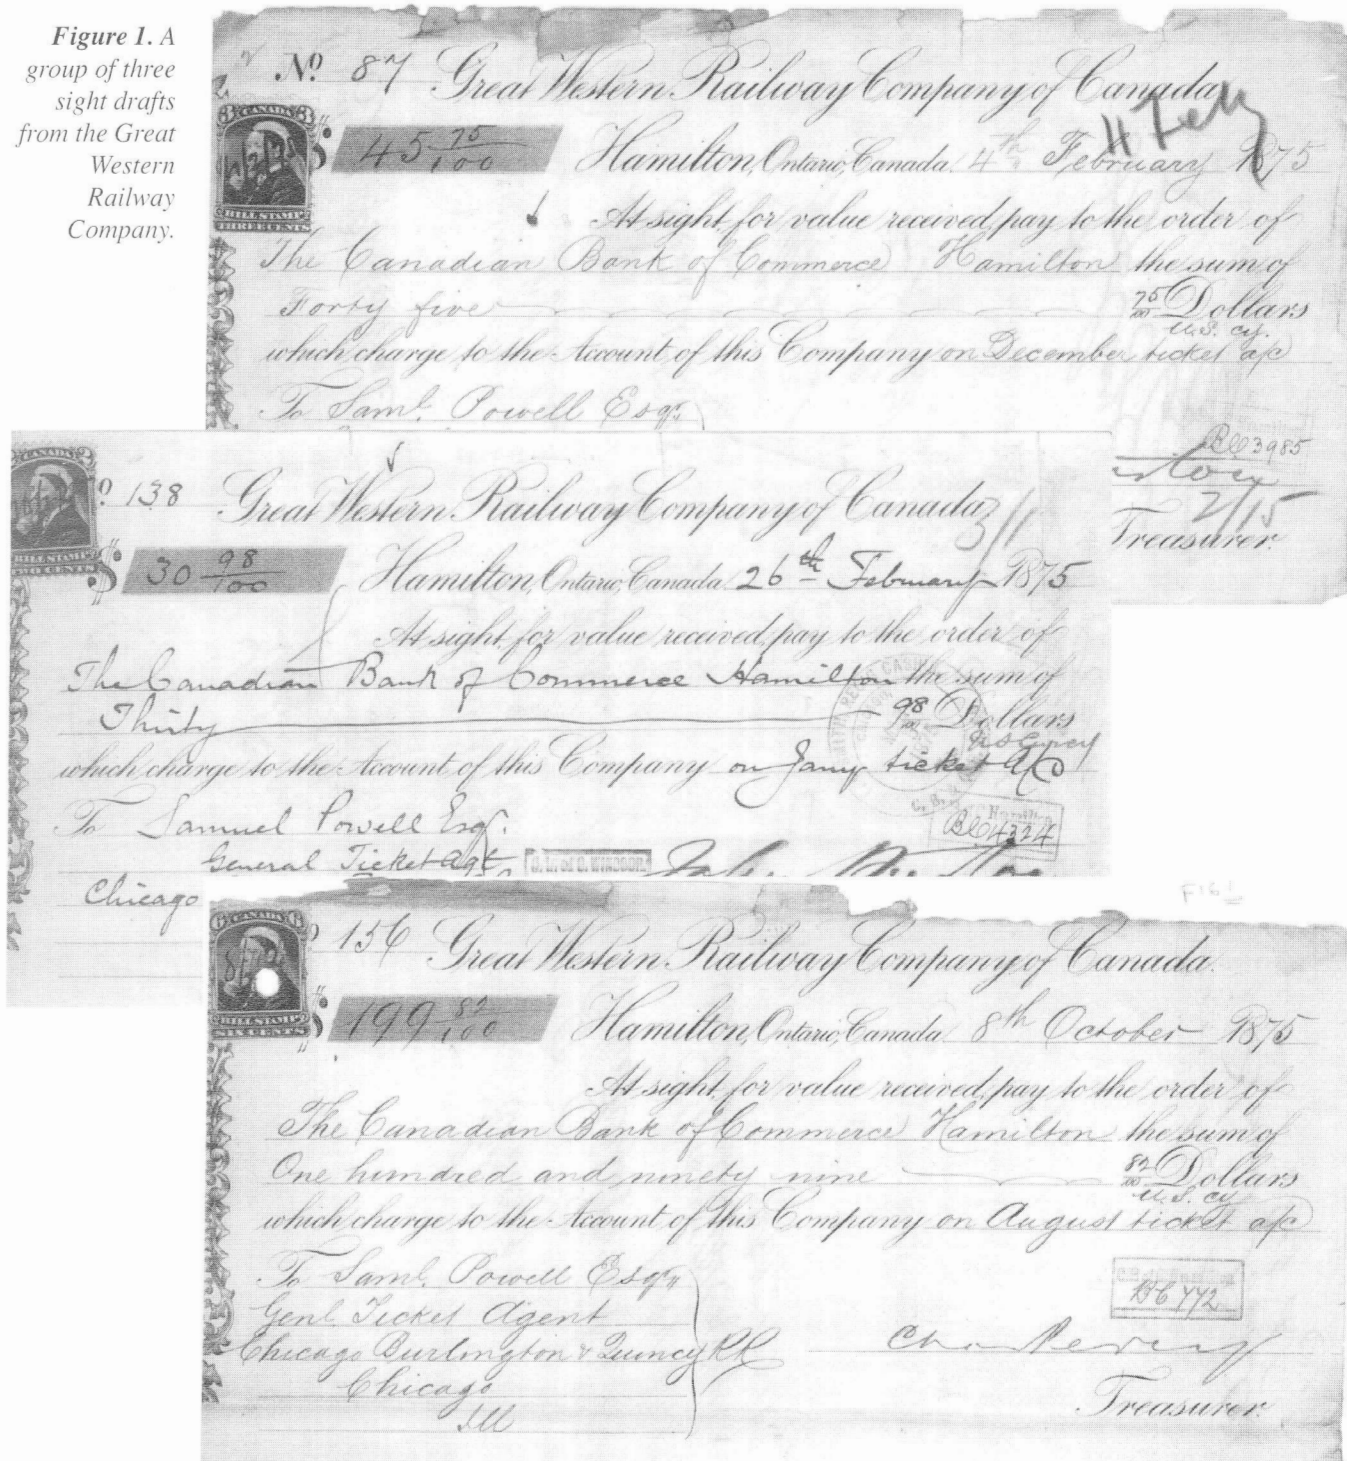 Figure 1. A
group of three
sight drafts
from the Great
Western
Railway
Company.
No 87 Great Western Railway Company of Canada
CANADA
3 3
BILL STAMP
THREE CENTS
$ 45 75/100 Hamilton, Ontario, Canada. 4th February 1875
4 Feby
At sight for value received, pay to the order of
The Canadian Bank of Commerce Hamilton the sum of
Forty five 75/100 Dollars
U.S. cy.
which charge to the Account of this Company on December ticket a/c
To Saml. Powell Esqr.
3985
2/15
Treasurer.
CANADA
BILL STAMP
TWO CENTS
No 138 Great Western Railway Company of Canada
3/1
$ 30 98/100 Hamilton, Ontario, Canada. 26th February 1875
At sight for value received, pay to the order of
The Canadian Bank of Commerce Hamilton the sum of
Thirty 98/100 Dollars
which charge to the Account of this Company on Jany ticket a/c
To Samuel Powell Esqr.
4334
General Ticket Agt
Chicago
FIG 1
CANADA
6 6
BILL STAMP
SIX CENTS
156 Great Western Railway Company of Canada.
$ 199 82/100 Hamilton, Ontario, Canada. 8th October 1875
At sight for value received, pay to the order of
The Canadian Bank of Commerce Hamilton the sum of
One hundred and ninety nine 82/100 Dollars
U.S. cy
which charge to the Account of this Company on August ticket a/c
To Saml. Powell Esqr.
Genl Ticket Agent
Chicago Burlington & Quincy RR
Chicago
Ill
772
Treasurer.